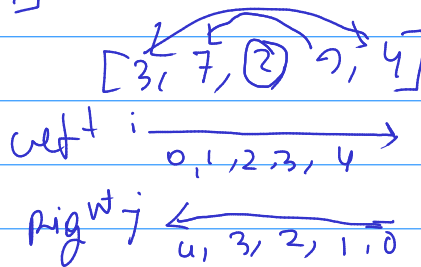 [3, 7, 2, 9, 4]
left i
0, 1, 2, 3, 4
right j
4, 3, 2, 1, 0